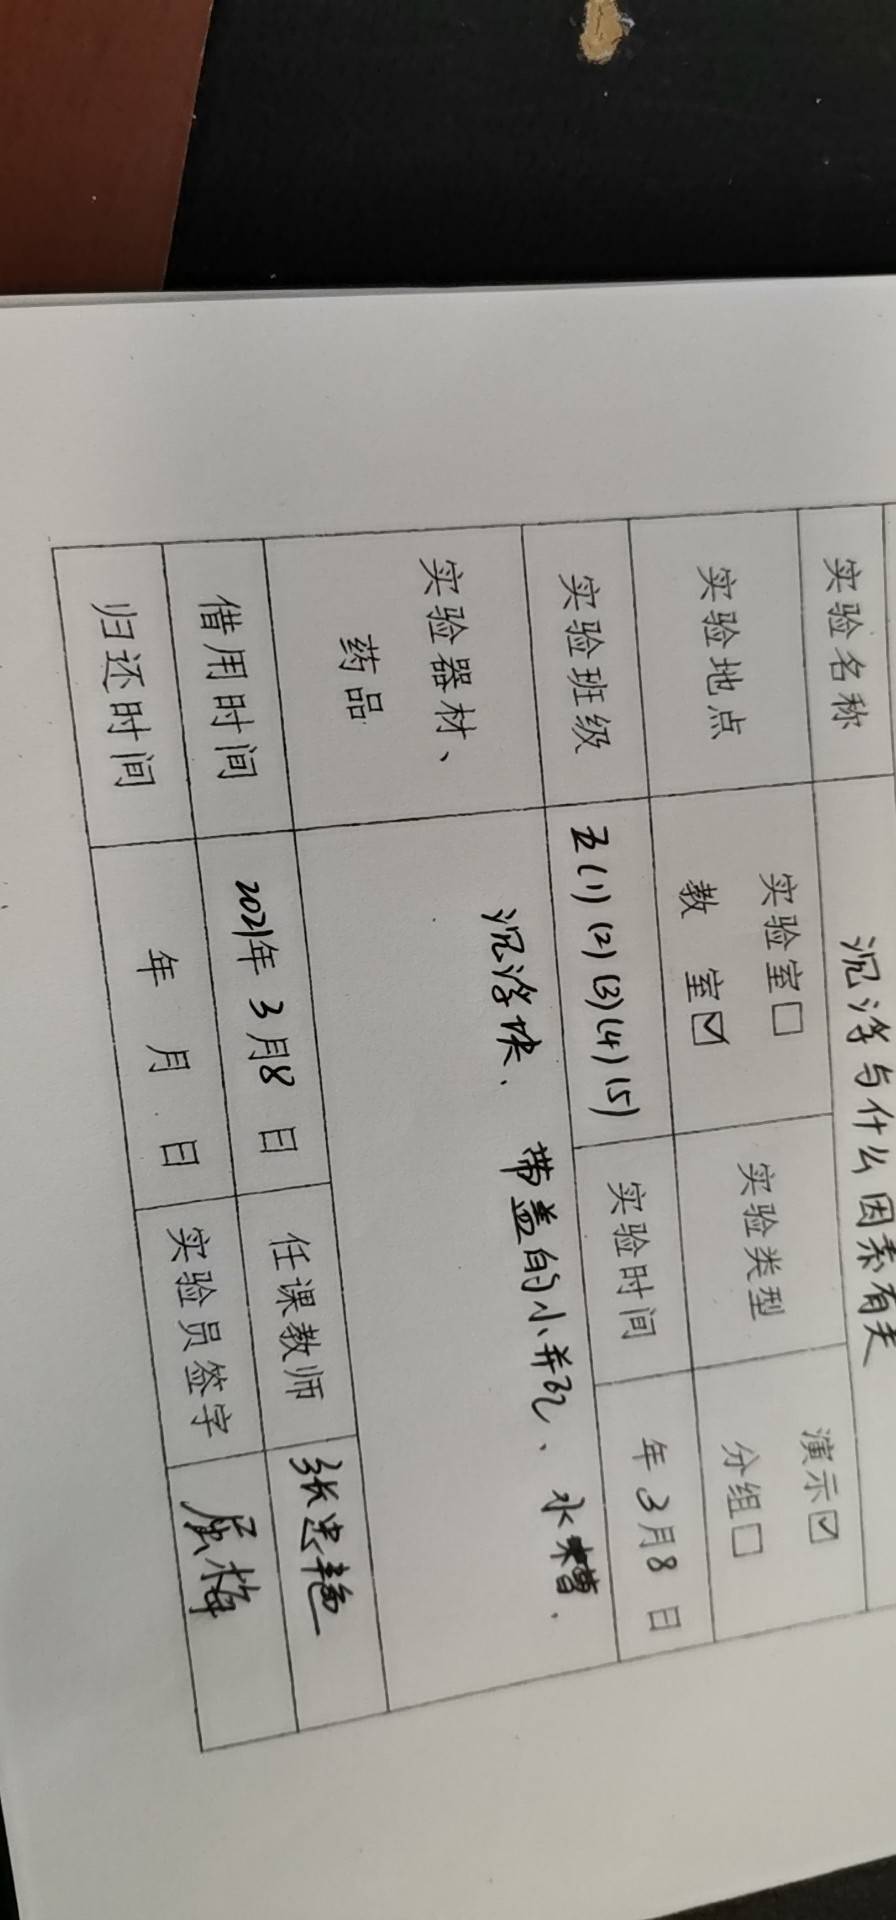 实验名称 沉浮与什么因素有关
实验地点 实验室□ 教 室☑ 实验类型 演示☑ 分组□
实验班级 五(1)(2)(3)(4)(5) 实验时间 年 3月8 日
实验器材、药品 沉浮块、带盖的小并瓦、水槽.
借用时间 2021年 3月8 日 任课教师 张忠艳
归还时间 年 月 日 实验员签字 屈梅